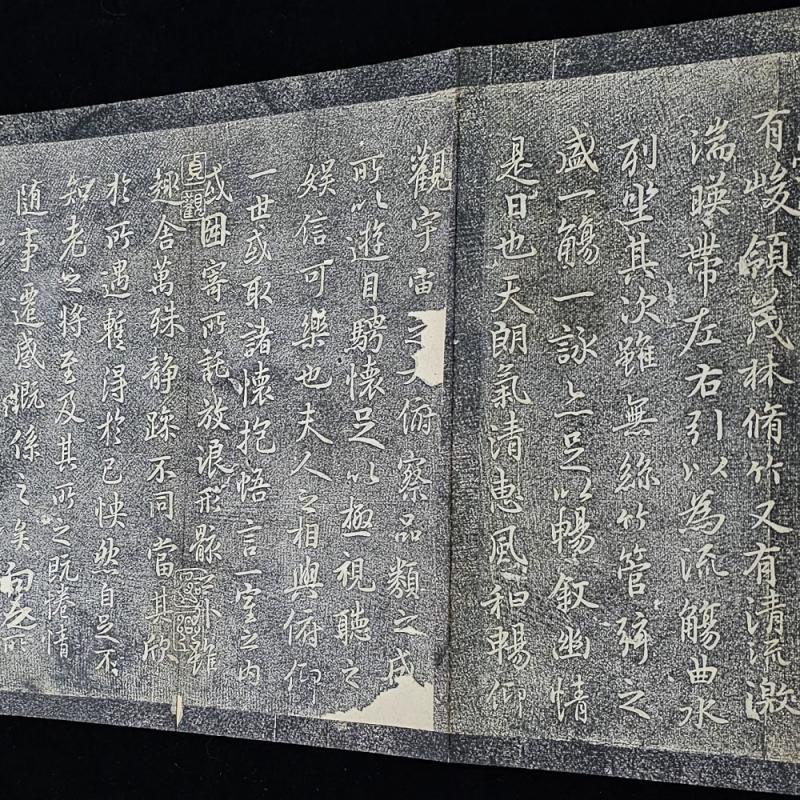 有峻領茂林脩竹又有清流激
湍暎帶左右引以為流觴曲水
列坐其次雖無絲竹管弦之
盛一觴一詠亦足以暢敘幽情
是日也天朗氣清惠風和暢仰
觀宇宙之大俯察品類之盛
所以遊目騁懷足以極視聽之
娛信可樂也夫人之相與俯仰
一世或取諸懷抱悟言一室之內
或因寄所託放浪形骸之外雖
貞觀
趣舍萬殊靜躁不同當其欣
於所遇暫得於己怏然自足不
知老之將至及其所之既惓情
隨事遷感慨係之矣向之所